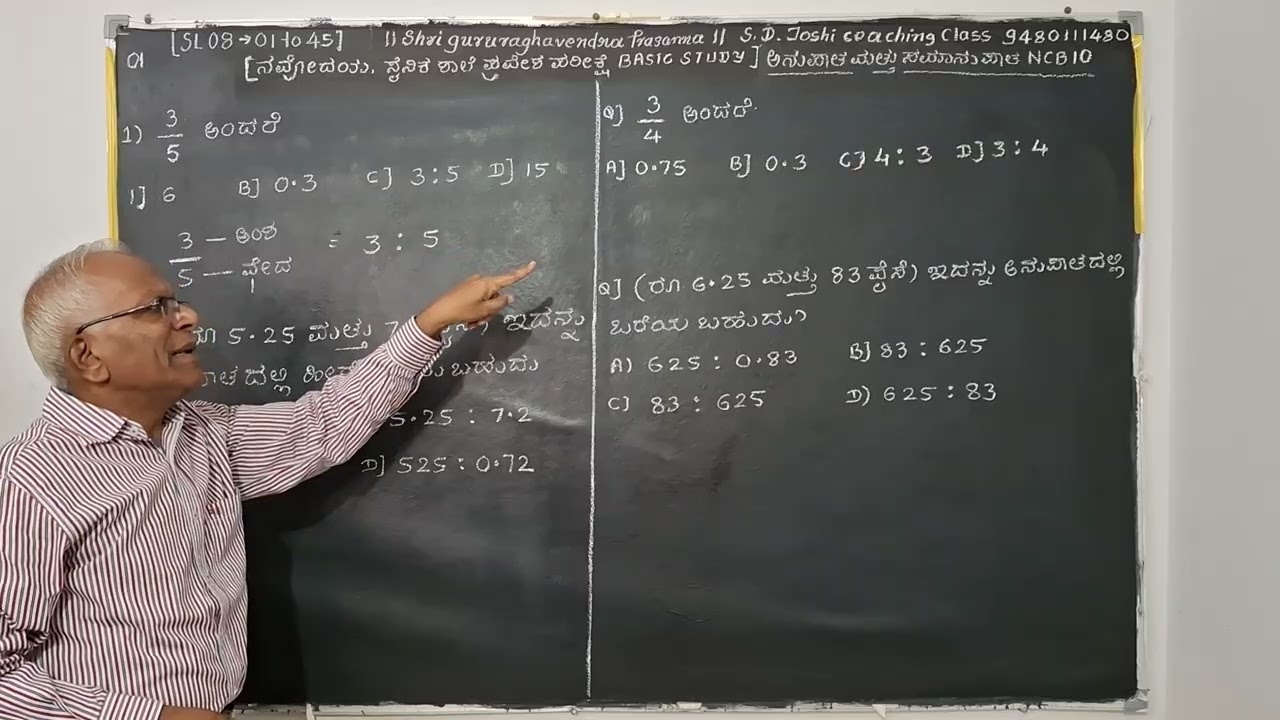 [SL08→01 to 45] || Shri gururaghavendra Prasanna || S.D. Joshi coaching Class 9480111480
01 [ನವೋದಯ, ಸೈನಿಕ ಶಾಲೆ ಪ್ರವೇಶ ಪರೀಕ್ಷೆ BASIC STUDY] ಅನುಪಾತ ಮತ್ತು ಸಮಾನುಪಾತ NCB10
1) 3/5 ಅಂದರೆ
1] 6 B] 0.3 C] 3:5 D] 15
3 — ಅಂಶ
5 — ಛೇದ
= 3 : 5
5.25 ಮತ್ತು 7 ಇದನ್ನು
ಬಹುದು
5.25 : 7.2
D] 525 : 0.72
Q] 3/4 ಅಂದರೆ.
A] 0.75 B] 0.3 C] 4:3 D] 3:4
Q] (ರೂ 6.25 ಮತ್ತು 83 ಪೈಸೆ) ಇದನ್ನು ಅನುಪಾತದಲ್ಲಿ
ಬರೆಯ ಬಹುದು?
A) 625 : 0.83 B] 83 : 625
C] 83 : 625 D) 625 : 83